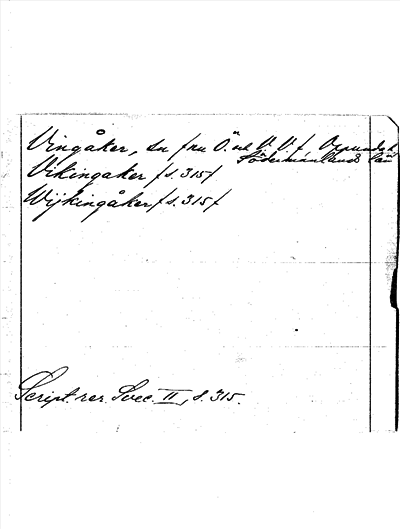 Vingåker, sn fru Ö. el V. V. f. Oppunda h.
Södermanlands län
Vikingaker /s. 315/
Wijkingåker /s. 315/
Script. rer. Svec. II, s. 315.